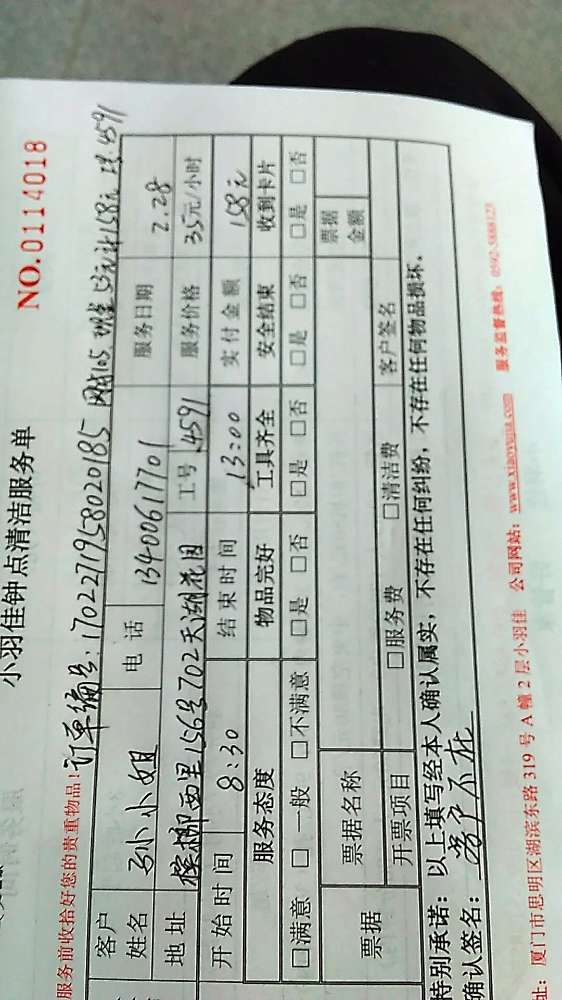 小羽佳钟点清洁服务单
NO.0114018
服务前收拾好您的贵重物品!
订单编号:1702271958020185
客户姓名 孙小姐 电话 13400617701 服务日期 2.28
地址 槟榔西里156号702天湖花园 工号 4591 服务价格 35元/小时
开始时间 8:30 结束时间 13:00 实付金额 158元
服务态度 物品完好 工具齐全 安全结束 收到卡片
□满意 □一般 □不满意 □是 □否 □是 □否 □是 □否 □是 □否
票据 票据名称 票据金额
开票项目 □服务费 □清洁费 客户签名
特别承诺: 以上填写经本人确认属实,不存在任何纠纷,不存在任何物品损坏.
确认签名: 客户不在
址: 厦门市思明区湖滨东路319号A幢2层小羽佳 公司网站: www.xiaoyujia.com 服务监督热线: 0592-3888123